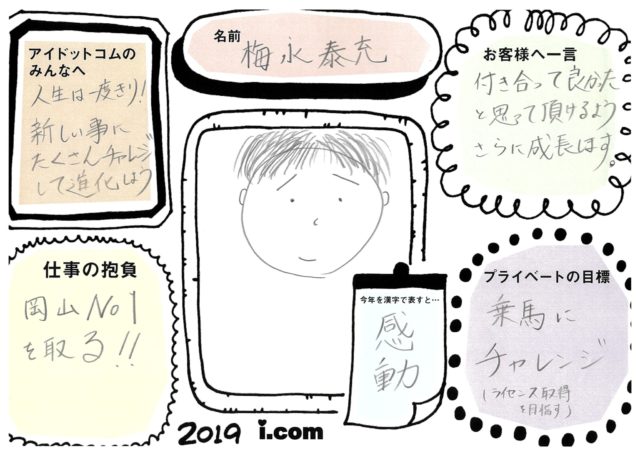 アイドットコムの
みんなへ
人生は一度きり!
新しい事に
たくさんチャレンジ
して進化しよう
名前
梅永泰充
お客様へ一言
付き合って良かった
と思って頂けるよう
さらに成長します。
仕事の抱負
岡山No1
を取る!!
今年を漢字で表すと…
感
動
プライベートの目標
乗馬に
チャレンジ
(ライセンス取得
を目指す)
2019 i.com